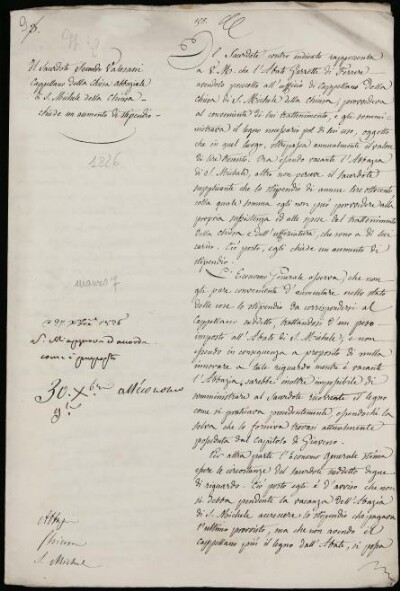 Il Sacerdote Secondo
Cappellano della Chiesa abbaziale
di S. Michele della Chiusa
chiede un aumento di stipendio
1826
marzo 7
S. M. approva ed accorda
come è proposto
30. Xbre all'Economo
S. Michele
Il Sacerdote contro indicato rappresenta
a V. M. che l'Abate Garretti di Ferrere
nominollo all'ufficio di Cappellano della
Chiesa di S. Michele della Chiusa, provvedeva
al conveniente di lui trattenimento, e gli sommini-
strava il legno necessario pel di lui uso, oggetto
che in quel luogo, oltrepassa annualmente il valore
di lire trecento. Ora essendo vacante l'Abbazia
di S. Michele, altro non perceve il sacerdote
supplicante che lo stipendio di annue lire ottocento
colla quale somma egli non può provvedere alla
propria sussistenza ed alle spese del trattenimento
della chiesa e dell'ufficiatura, che sono a di lui
carico. Ciò posto, egli chiede un aumento di
stipendio.
L'Economo Generale osserva che non
gli pare conveniente d'aumentare nello stato
delle cose lo stipendio da corrispondersi al
Cappellano suddetto, trattandosi d'un peso
imposto all'Abate di S. Michele, e non
essendo in conseguenza a proposito di nulla
innovare a tale riguardo mentre è vacante
l'Abbazia, sarebbe inoltre impossibile di
somministrare al Sacerdote ricorrente il legno
come si praticava precedentemente, essendochè la
selva che lo forniva trovasi attualmente
posseduta dal Capitolo di Giaveno.
Per altra parte l'Economo generale stima
essere le circostanze del sacerdote suddetto degne
di riguardo. Ciò posto egli è d'avviso che non
si debba, pendente la vacanza dell'Abazia
di S. Michele accrescere lo stipendio che pagava
l'ultimo provvisto, ma che non avendo il
Cappellano più il legno dall'Abate, si possa